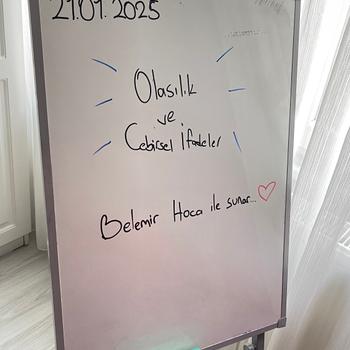 21.01.2025
Olasılık
ve
Cebirsel İfadeler
Belemir Hoca ile sunar...